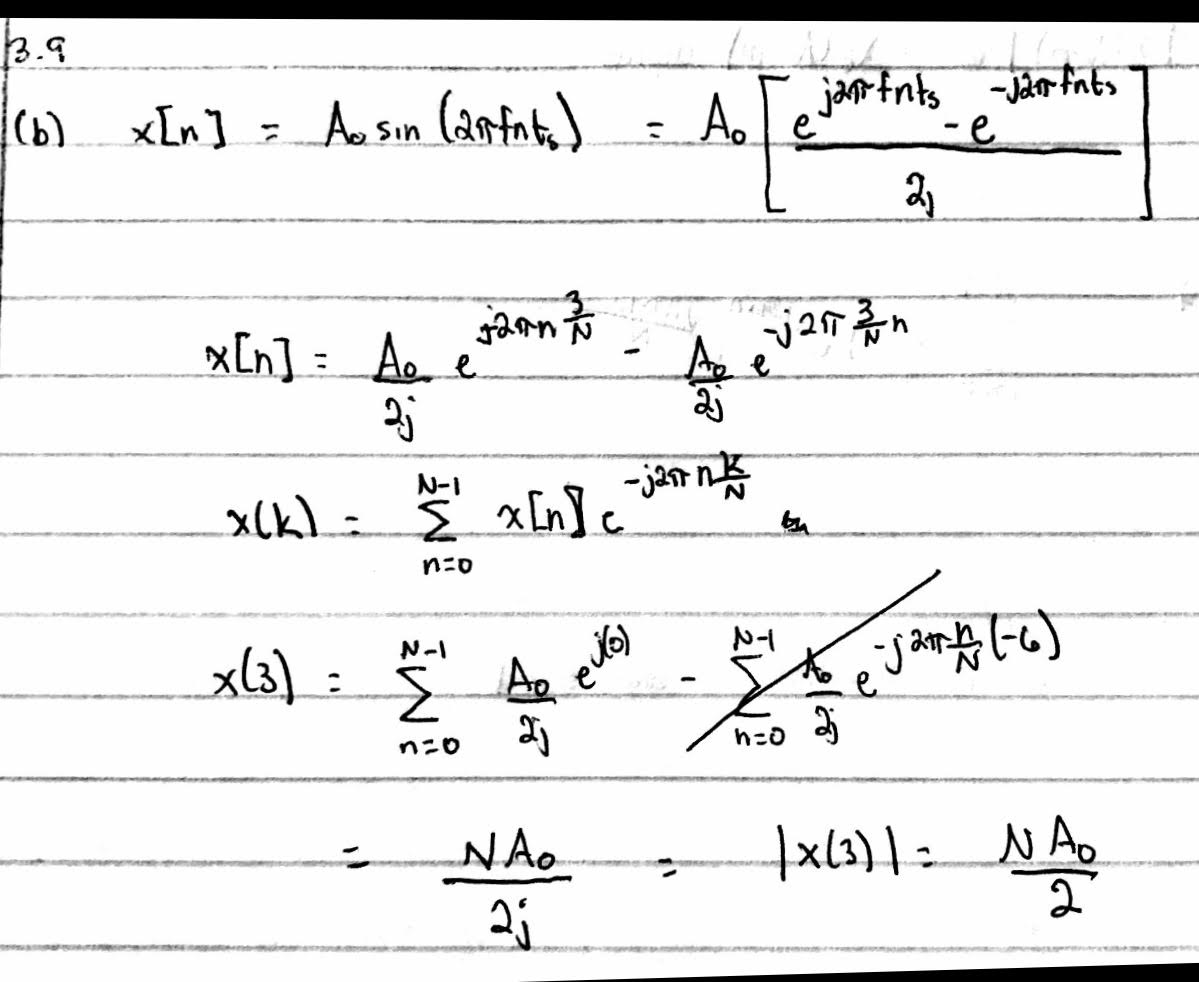 3.9
(b) x[n] = A₀ sin (2πfntₛ) = A₀ [ (e^{j2πfntₛ} - e^{-j2πfntₛ}) / 2j ]
x[n] = A₀/2j e^{j2πn 3/N} - A₀/2j e^{-j2π 3/N n}
x(k) = Σ_{n=0}^{N-1} x[n] e^{-j2πn k/N}
x(3) = Σ_{n=0}^{N-1} A₀/2j e^{j(0)} - Σ_{n=0}^{N-1} A₀/2j e^{-j2π n/N (-6)}
= NA₀/2j = |x(3)| = NA₀/2